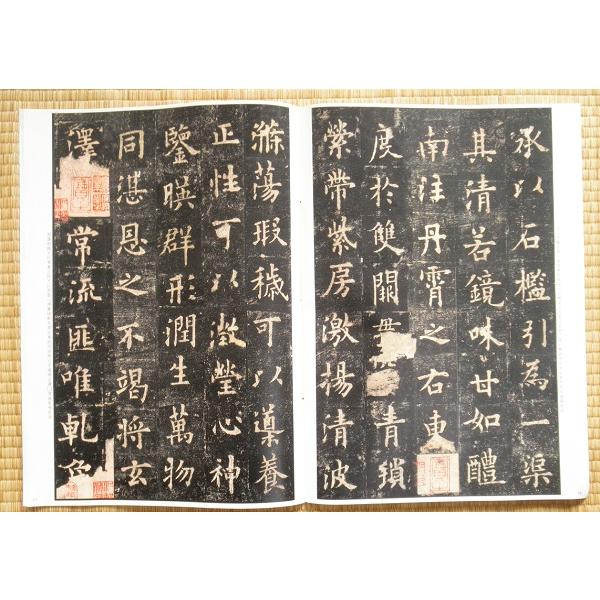 承以石檻引爲一渠
其清若鏡味甘如醴
南注丹霄之右東
度於雙闕 青瑣
縈帶紫房激揚清波
滌蕩瑕穢可以導養
正性可以澂瑩心神
鑒暎群形潤生萬物
同湛恩之不竭將玄
澤常流匪唯乾象